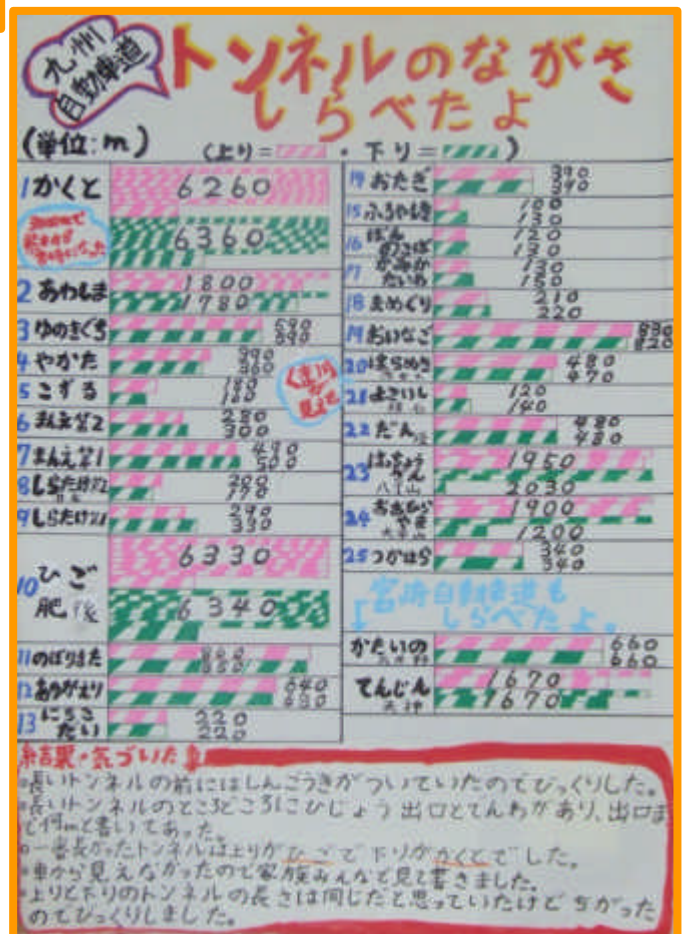 九州
自動車道
トンネルのながさ
しらべたよ
(単位:m)
(上り= ・下り= )
1 かくと 6260
6360
2 あわしま 1800
1780
3 ゆのきぐち 590
590
4 やかた 390
5 こずる
6 まんえ 2 280
300
7 まんえ 1 490
500
8 しらたけ 200
170
9 しらたけ 290
330
10 ひご 6330
肥後 6340
11 のぼりまた
12 ありがえり 640
630
13 にちさだい 220
220
くま川が見えた
14 おたぎ 390
390
15 100
130
16 ばん 120
130
17 130
150
18 まめぐり 210
220
19 おいなご 830
820
20 はらめき 480
470
21 よこいし 120
140
22 だん 480
480
23 はっちょう 1950
八丁山 2030
24 1900
1200
25 つかはら 340
340
宮崎自動車道も
しらべたよ。
かたいの 660
660
てんじん 1670
天神 1670
結果・気づいた事
・長いトンネルの前にはしんごうきがついていたのでびっくりした。
・長いトンネルのところどころにひじょう出口とてんわがあり、出口ま
で何mと書いてあった。
・一番長かったトンネルは上りがひごで下りがかくとでした。
・車から見えなかったので家族みんなで見て書きました。
・上りと下りのトンネルの長さは同じだと思っていたけどちがった
のでびっくりしました。